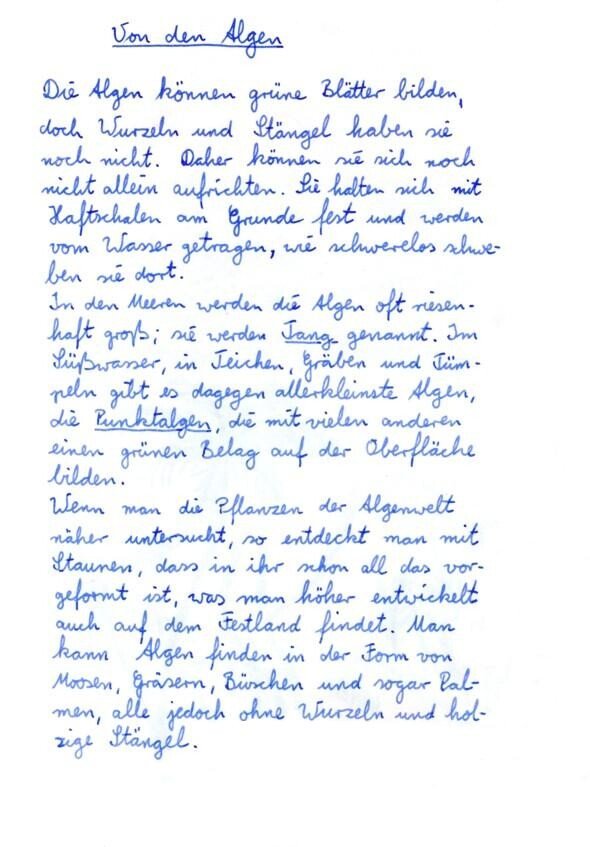 Von den Algen
Die Algen können grüne Blätter bilden,
doch Wurzeln und Stängel haben sie
noch nicht. Daher können sie sich noch
nicht allein aufrichten. Sie halten sich mit
Haftschalen am Grunde fest und werden
vom Wasser getragen, wie schwerelos schwe-
ben sie dort.
In den Meeren werden die Algen oft riesen-
haft groß; sie werden Tang genannt. Im
Süßwasser, in Teichen, Gräben und Tüm-
peln gibt es dagegen allerkleinste Algen,
die Punktalgen, die mit vielen anderen
einen grünen Belag auf der Oberfläche
bilden.
Wenn man die Pflanzen der Algenwelt
näher untersucht, so entdeckt man mit
Staunen, dass in ihr schon all das vor-
geformt ist, was man höher entwickelt
auch auf dem Festland findet. Man
kann Algen finden in der Form von
Moosen, Gräsern, Büschen und sogar Pal-
men, alle jedoch ohne Wurzeln und hol-
zige Stängel.